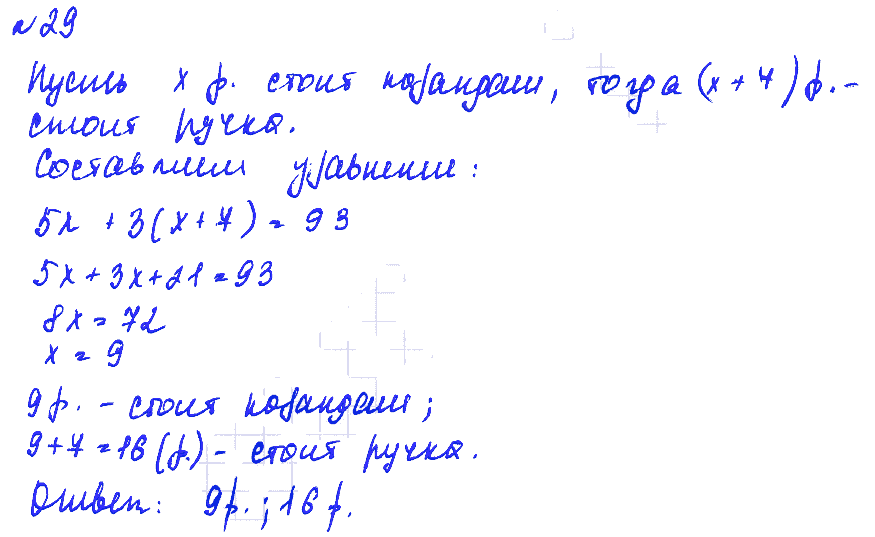 №29
Пусть x р. стоит карандаш, тогда (x+7) р. -
стоит ручка.
Составляем уравнение:
5x + 3(x+7) = 93
5x+3x+21=93
8x=72
x=9
9 р. - стоит карандаш;
9+7=16 (р.) - стоит ручка.
Ответ: 9р.; 16 р.